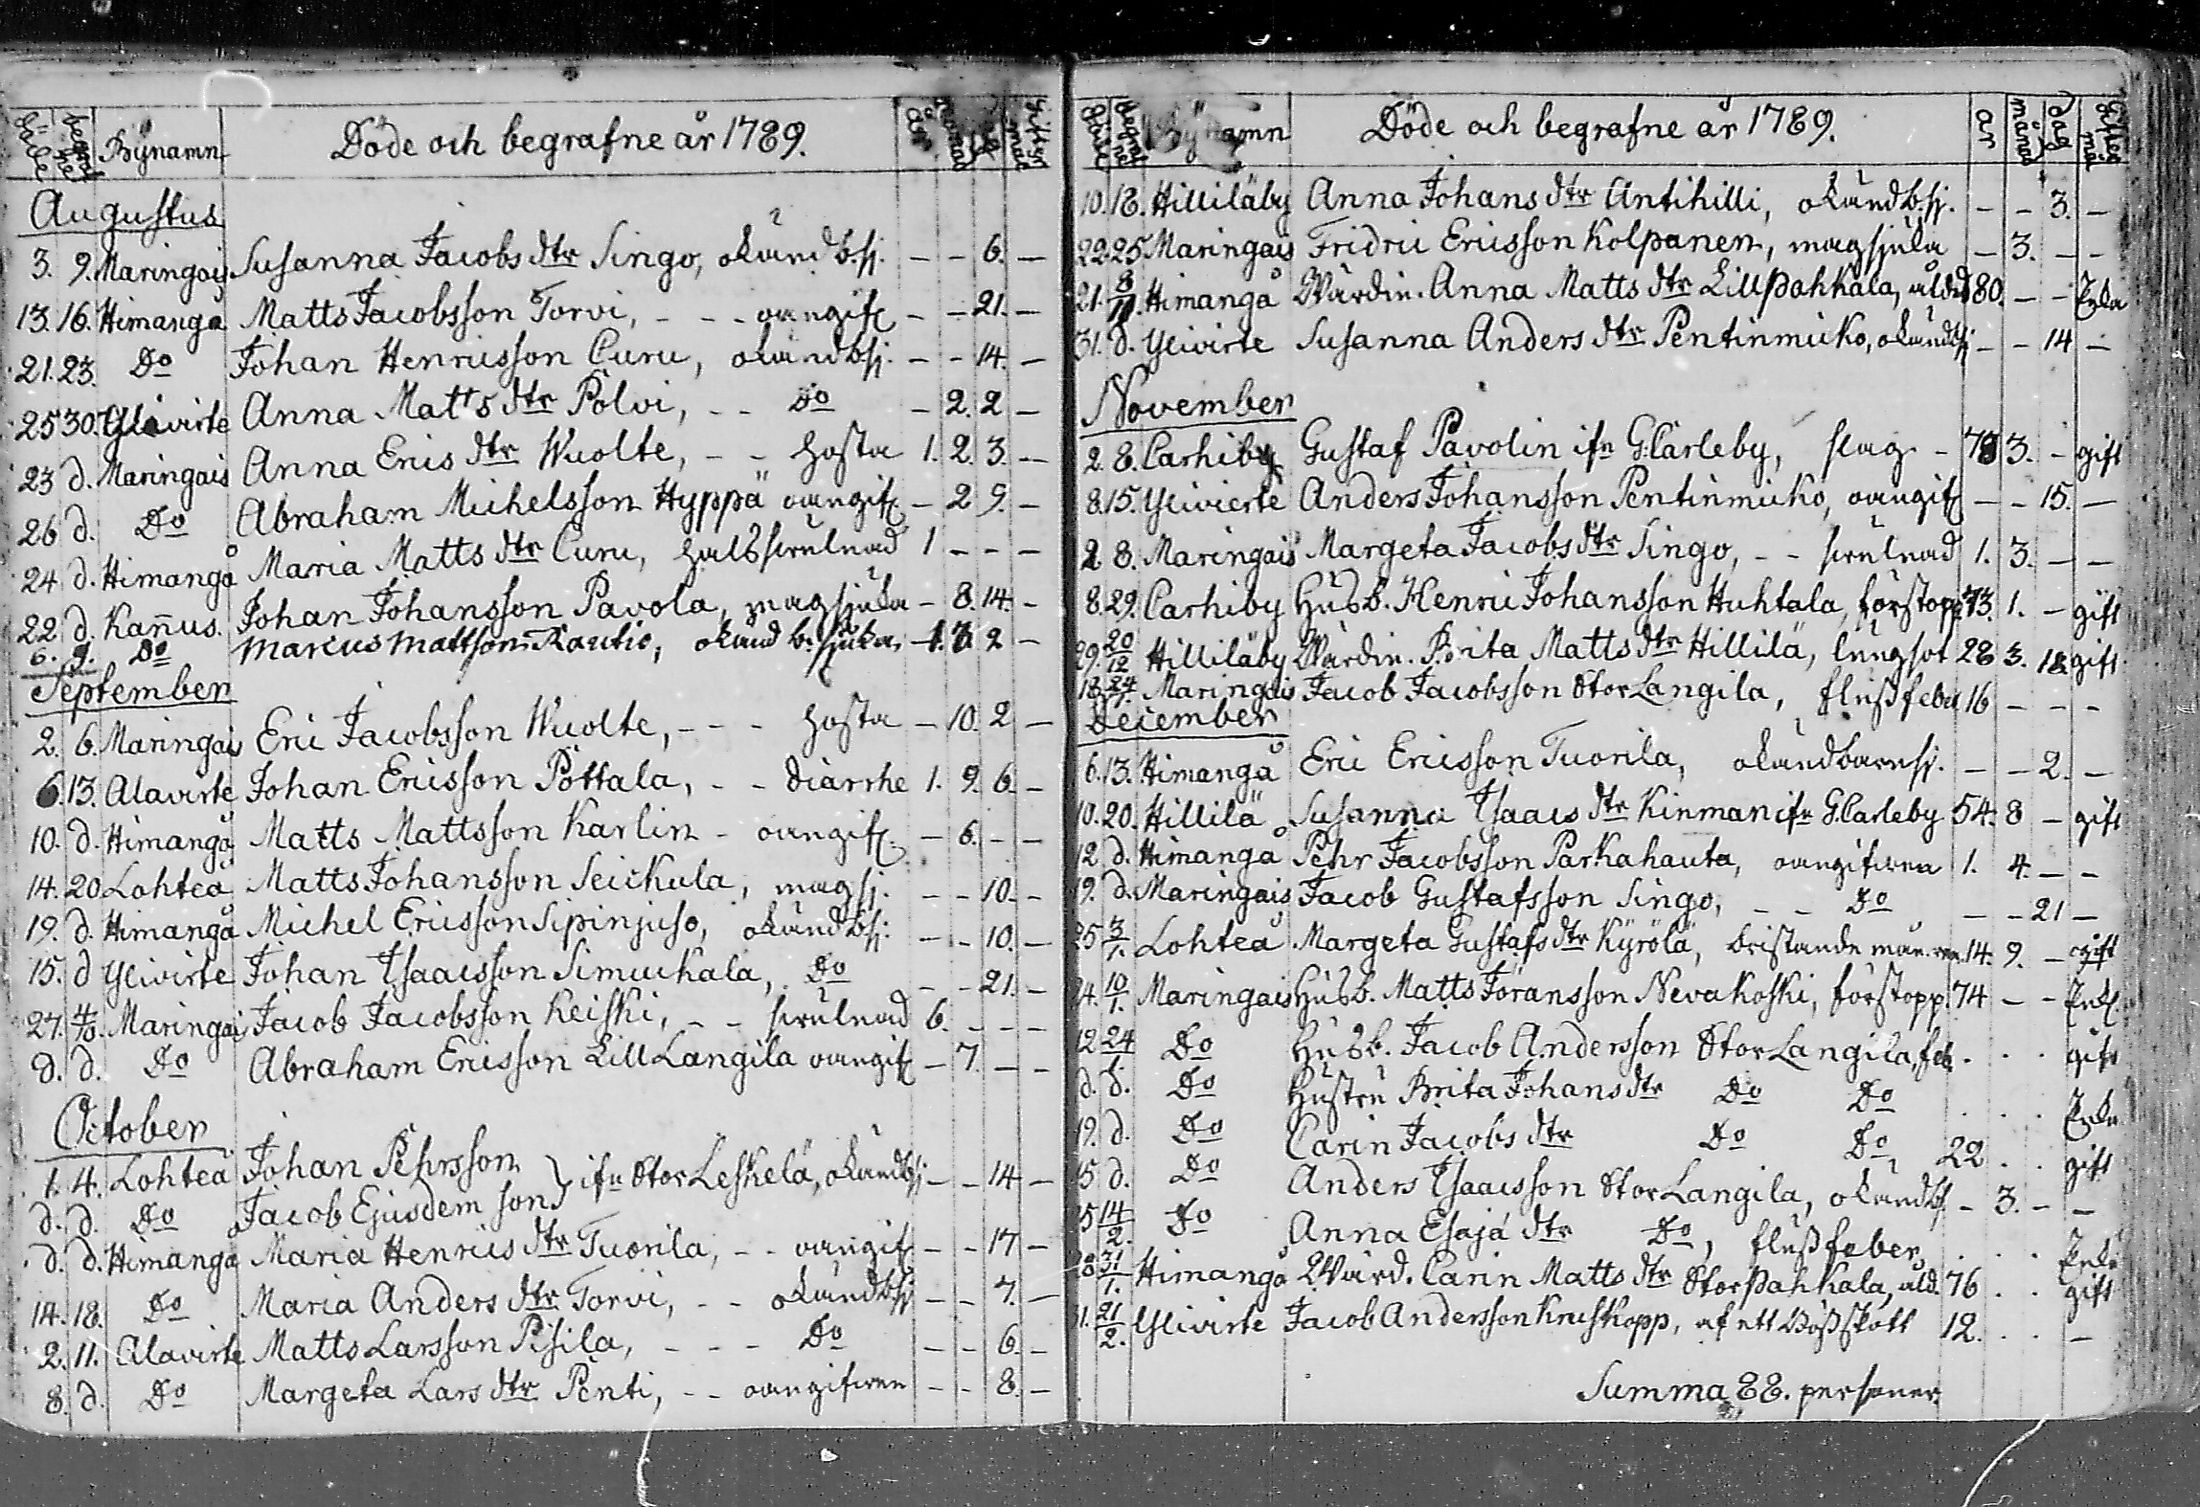 Döde begrafne Bÿnamn Döde och begrafne år 1789. år månad dag
Augustus
3. 9. Maringais Susanna Jacobs dtr Singo, okänd bsj. - - 6. -
13. 16. Himangå Matts Jacobsson Torvi, - - - oangif. - - 21. -
21. 23. Do Johan Henricsson Curu, okänd bsj. - - 14. -
25 30. Ylivirte Anna Matts dtr Pölvi, - - Do - 2. 2 -
23 d. Maringais Anna Erics dtr Wuolte, - - hosta 1. 2. 3. -
26 d. Do Abraham Michelsson Hyppä oangif. - 2 9. -
24 d. Himangå Maria Matts dtr Curu, halssvulnad 1 - - -
22 d. Kañus. Johan Johansson Pavola, magsjuka - 8. 14. -
6. 9. Do Marcus Mattsson Rautio, okänd b. sjuka, - 1. 3 2 -
September
2. 6. Maringais Eric Jacobsson Wuolte, - - - hosta - 10. 2 -
6. 13. Alavirte Johan Ericsson Pöttala, - - diarrhe 1. 9. 6. -
10. d. Himangå Matts Mattsson Karlin - oangif. - 6. - -
14. 20 Lohteå Matts Johansson Seickula, magsj. - - 10. -
19. d. Himangå Michel Ericsson Sipinjuso, okänd bsj. - - 10. -
15. d Ylivirte Johan Isaacsson Simuckala, Do - - 21. -
27. 4/10. Maringais Jacob Jacobsson Keiski, - - svulnad 6. - - -
d. d. Do Abraham Ericsson Lill Langila oangif - 7. - -
October
1. 4. Lohteå Johan Pehrsson } ifr Stor Leskelä, okänd bsj - - 14 -
d. d. Do Jacob Ejusdem son
d. d. Himangå Maria Henrics dtr Tuorila, - - oangif - - 17 -
14. 18. Do Maria Anders dtr Torvi, - - okänd bsj - - 7. -
2. 11. Alavirte Matts Larsson Pisila, - - - Do - - 6. -
8. d. Do Margeta Lars dtr Penti, - - oangifven - - 8. -
Döde begrafne Bÿnamn Döde och begrafne år 1789. år månad dag
10. 18. Hilliläby Anna Johans dtr Antihilli, okänd bsj. - - 3. -
22. 25 Maringais Fridric Ericsson Kolpanen, magsjuka - 3. - -
21. 8/11. Himangå Wärdin. Anna Matts dtr Lillpahkala, ålderd 80. - - Enka
31. d. Ylivirte Susanna Anders dtr Pentinmicko, okänd bsj - - 14 -
November
2. 8. Carhiby Gustaf Pavolin ifr G. Carleby, slag - 78 3. - gift
8. 15. Ylivierte Anders Johansson Pentinmicko, oangif - - 15. -
2 8. Maringais Margeta Jacobs dtr Singo, - - svulnad 1. 3. - -
8. 29. Carhiby Husb. Henric Johansson Huhtala, förstopp. 73. 1. - gift
29. 20/12 Hilliläby Wärdin. Brita Matts dtr Hillilä, lungsot 28 3. 18. gift
18. 24/1. Maringais Jacob Jacobsson Stor Langila, flussfeber 16 - - -
December
6. 13. Himangå Eric Ericsson Tuorila, okänd barnsj. - - 2. -
10. 20. Hillilä Susanna Isaacs dtr Kinman ifr G. Carleby 54. 8 - gift
12 d. Himangå Pehr Jacobsson Parkahauta, oangifven 1. 4. - -
9. d. Maringais Jacob Gustafsson Singo, - - Do - - 21 -
25 3/1. Lohteå Margeta Gustafs dtr Kyrölä, 14. 9. -
24. 10/1. Maringais Husb. Matts Jöransson Nevakoski, förstopp. 74 - - Enkl.
12 24/1 Do Husb. Jacob Andersson Stor Langila, feb. . . . gift
d. d. Do Hustru Brita Johans dtr Do Do . . . Enka
19. d. Do Carin Jacobs dtr Do Do 22 . . gift
15 d. Do Anders Isaacsson Stor Langila, okänd bsj - 3. - -
25 14/2. Do Anna Esajæ dtr Do, flussfeber, . . . Enka
28 31/1. Himangå Wärd. Carin Matts dtr Storpahkala, åld. 76 . . gift
31. 21/2. Ylivirte Jacob Andersson Kruskopp, af ett Bösskott 12. . . -
Summa 88. personer.